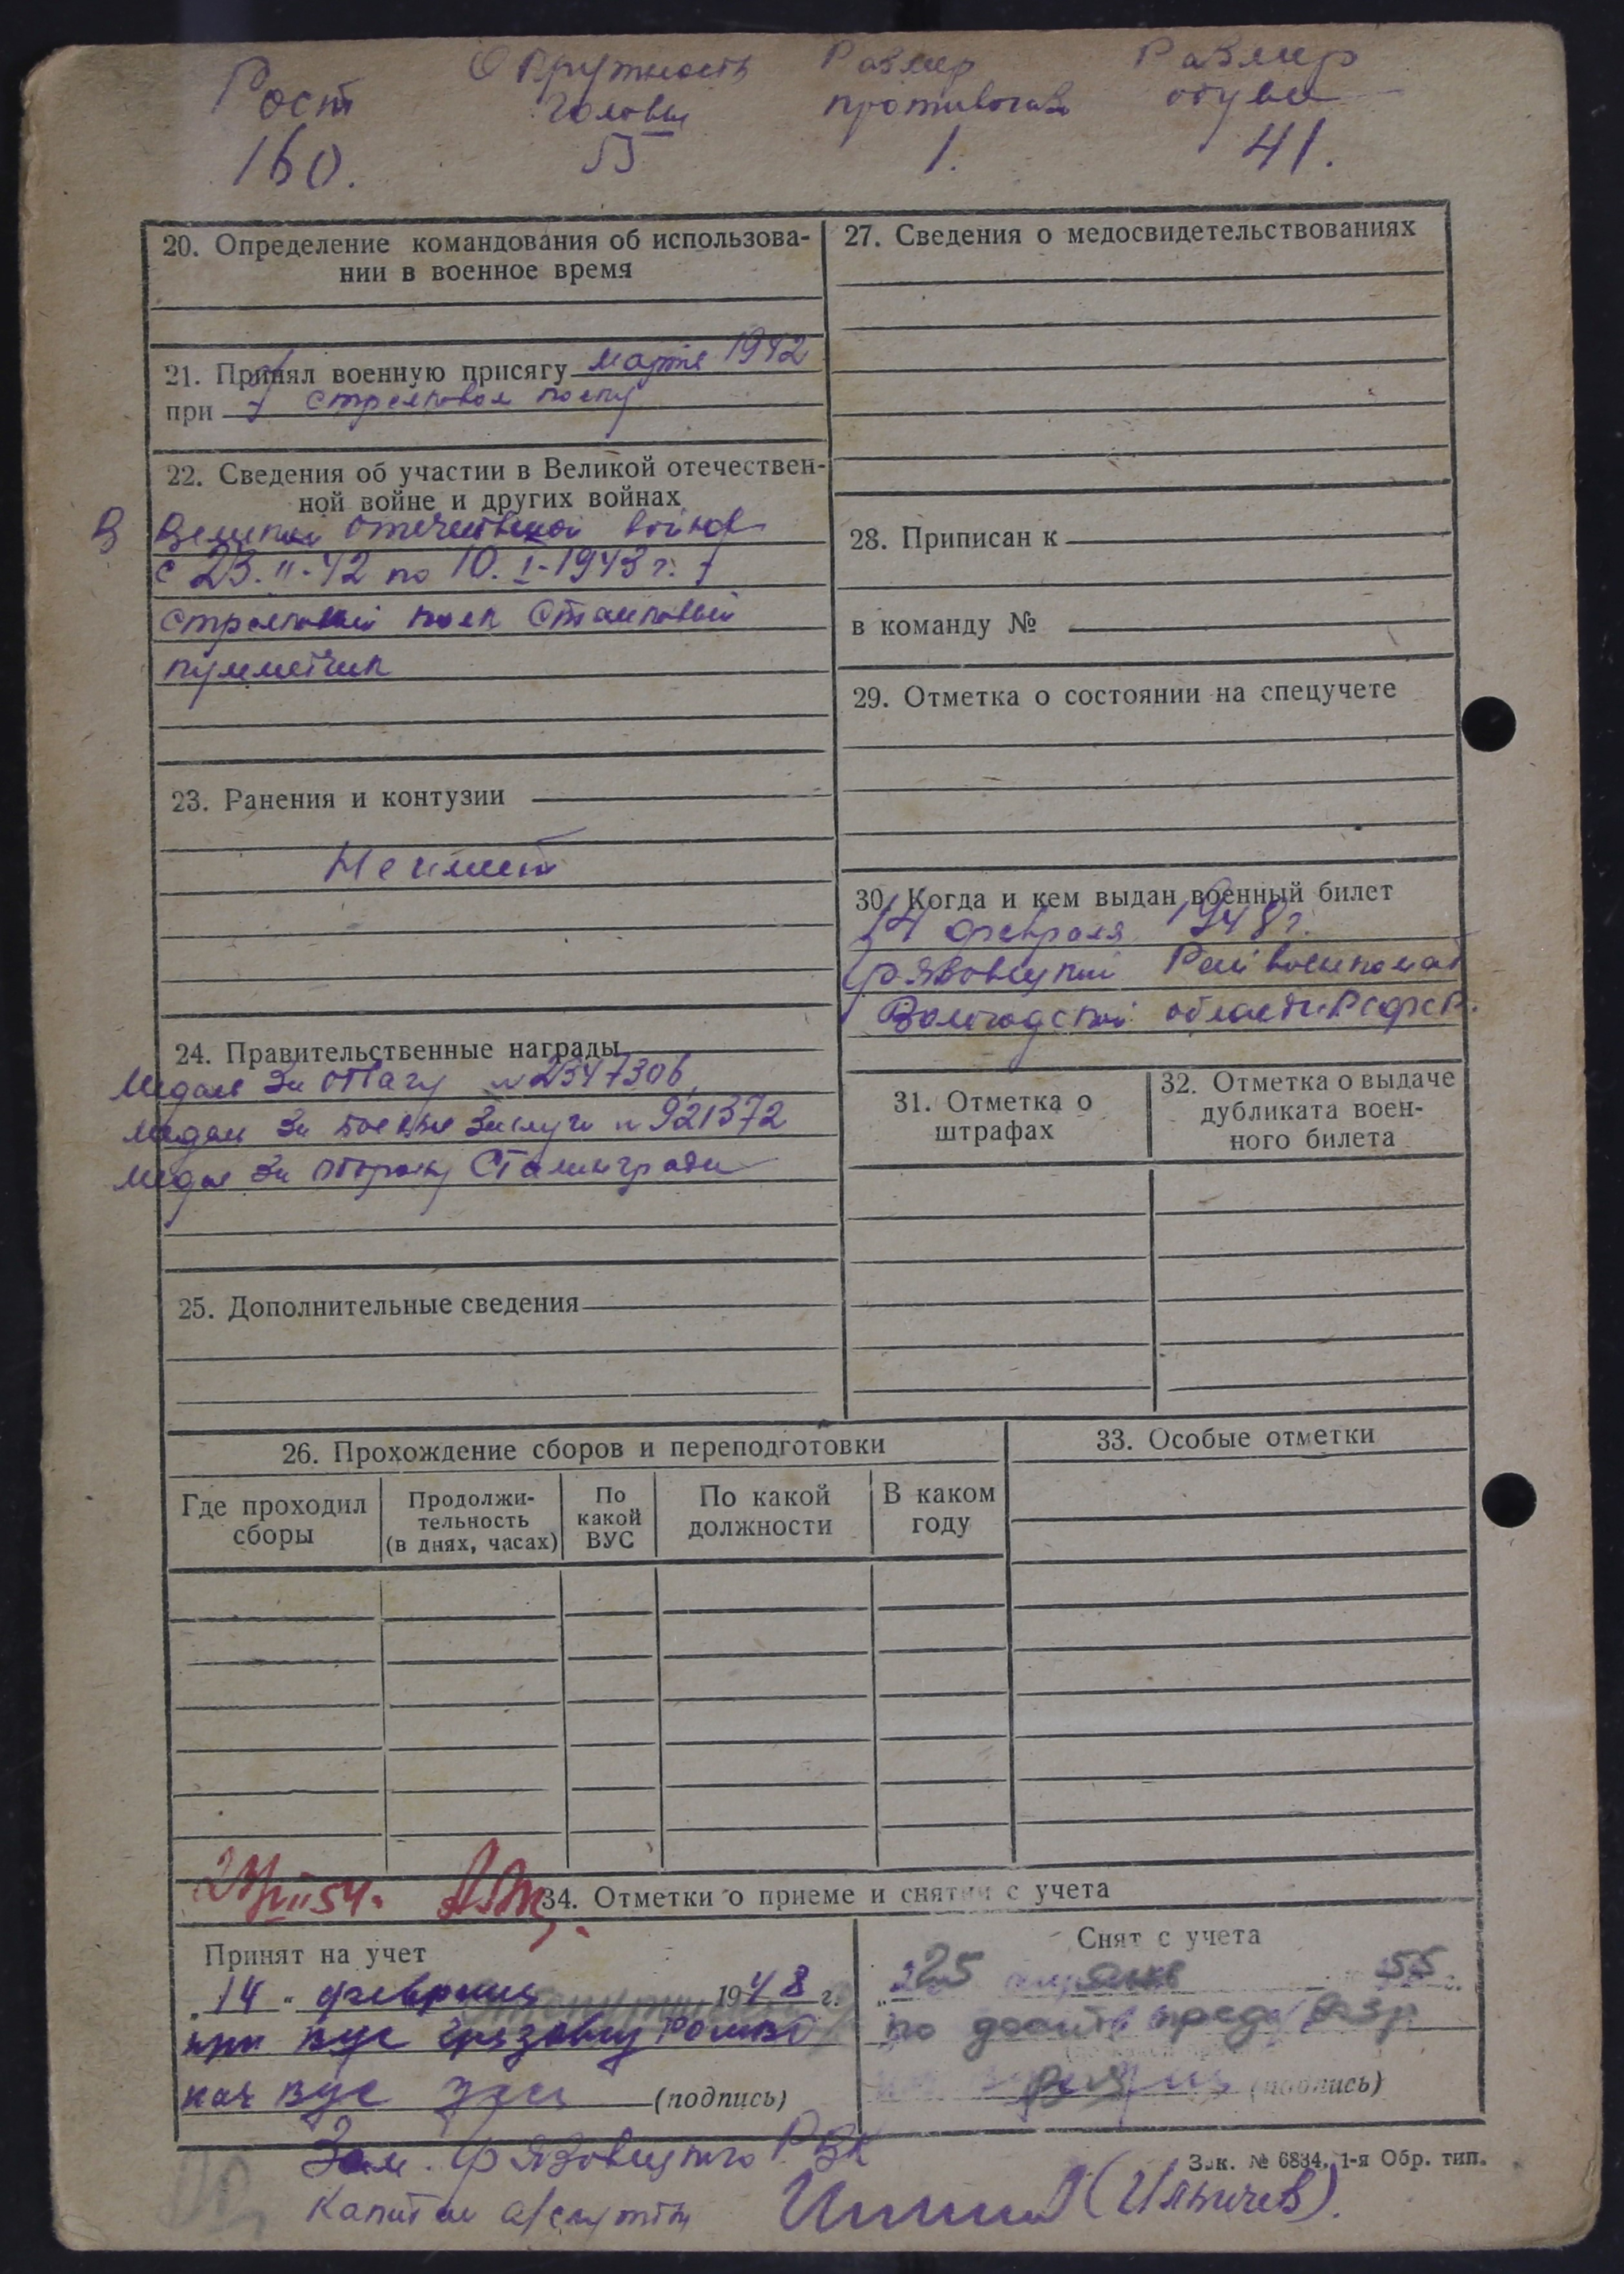 Рост Окружность Размер Размер
головы противогаза обуви
160. 55 1. 41.
20. Определение командования об использова-
нии в военное время
21. Принял военную присягу марте 1942
при стрелковом полку
22. Сведения об участии в Великой отечествен-
ной войне и других войнах
В Великой отечественной войне
с 23.II-42 по 10.I-1943 г.
стрелковый полк Станковый
пулеметчик
23. Ранения и контузии
Не имеет
24. Правительственные награды
Медаль За отвагу №2347306,
медаль За боевые заслуги №921372
медаль За оборону Сталинграда
25. Дополнительные сведения
27. Сведения о медосвидетельствованиях
28. Приписан к
в команду №
29. Отметка о состоянии на спецучете
30. Когда и кем выдан военный билет
14 февраля 1948 г.
Грязовецкий Райвоенкомат
Вологодской области РСФСР.
31. Отметка о
штрафах
32. Отметка о выдаче
дубликата воен-
ного билета
26. Прохождение сборов и переподготовки
Где проходил
сборы
Продолжи-
тельность
(в днях, часах)
По
какой
ВУС
По какой
должности
В каком
году
33. Особые отметки
54г.
34. Отметки о приеме и снятии с учета
Принят на учет
„14" февраля 1948 г.
при ВУС
нач ВУС (подпись)
Снят с учета
25 янв 55 г.
по пред
(подпись)
Зам. Грязовецкого РВК
Зак. № 6834. 1-я Обр. тип.
Капитан а/службы (Ильичев).